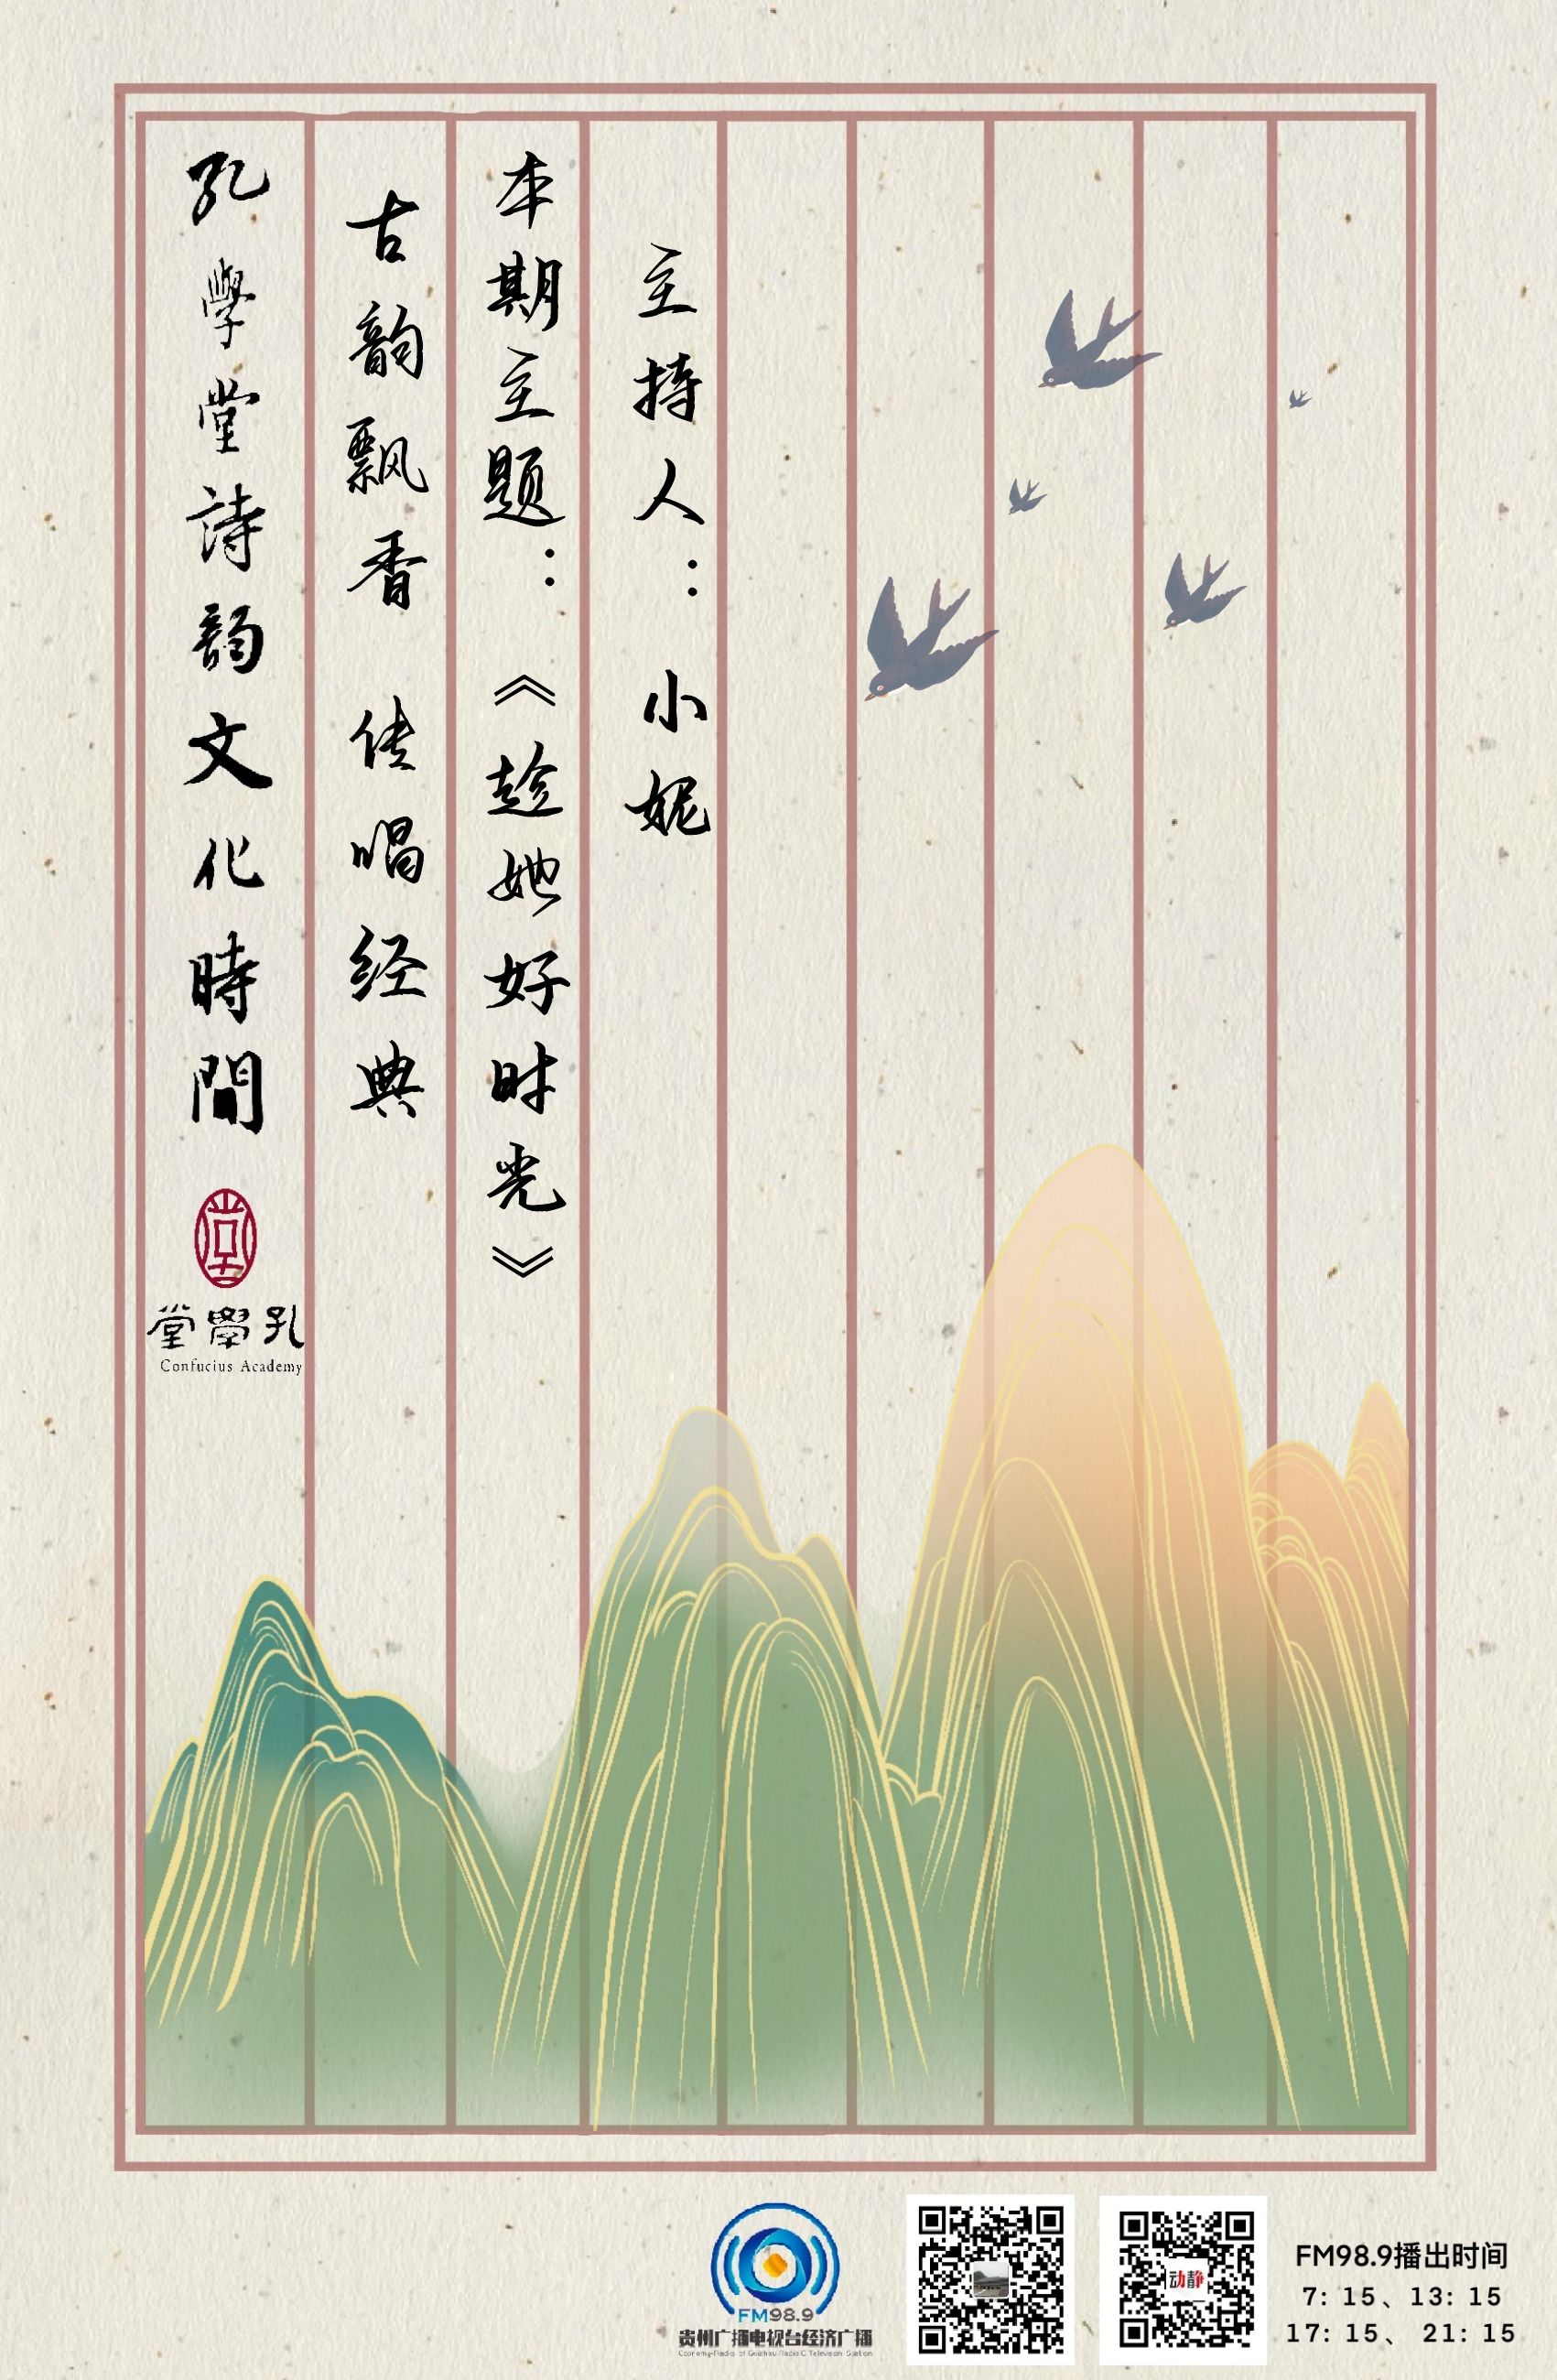 孔學堂詩韵文化時間
堂學孔
Confucius Academy
古韵飘香 传唱经典
本期主题：《趁她好时光》
主持人：小妮
FM98.9
贵州广播电视台经济广播
Economy-Radio of Guizhou Radio & Television Station
动静
FM98.9播出时间
7: 15、13: 15
17: 15、 21: 15